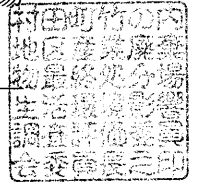 村田町竹の内
地区産業廃棄
物最終処分場
生活環境影響
調査評価委員
会委員長之印